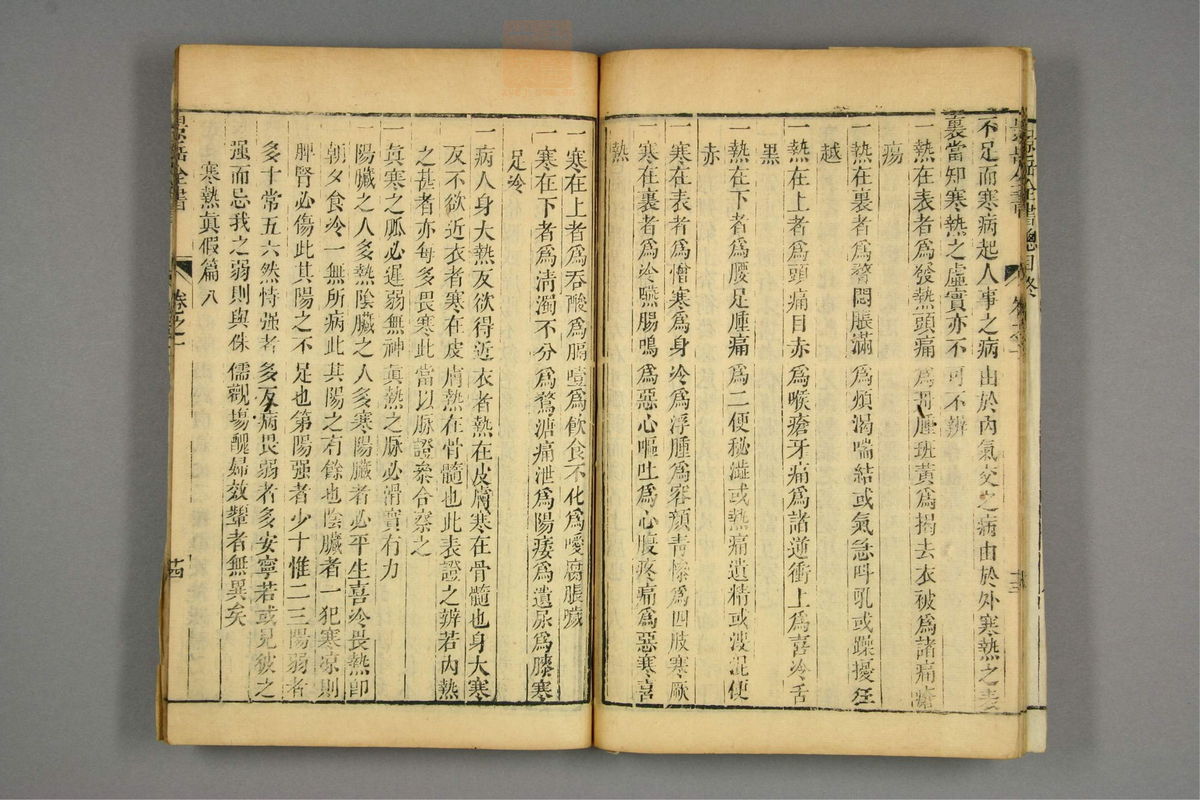 不足而寒病起人事之病由於內氣交之病由於外寒熱之表
裏當知寒熱之虛實亦不可不辨
一熱在表者爲發熱頭痛爲丹腫班黃爲揭去衣被爲諸痛瘡
瘍
一熱在裏者爲瞀悶脹滿爲煩渴喘結或氣急叫吼或躁擾狂
越
一熱在上者爲頭痛目赤爲喉瘡牙痛爲諸逆衝上爲喜冷舌
黑
一熱在下者爲腰足腫痛爲二便秘澁或熱痛遺精或溲混便
赤
一寒在表者爲憎寒爲身冷爲浮腫爲容顏青慘爲四肢寒厥
一寒在裏者爲冷嚥腸鳴爲惡心嘔吐爲心腹疼痛爲惡寒喜
熱
一寒在上者爲吞酸爲膈噎爲飲食不化爲噯腐脹噦
一寒在下者爲清濁不分爲鶩溏痛泄爲陽痿爲遺尿爲膝寒
足冷
一病人身大熱反欲得近衣者熱在皮膚寒在骨髓也身大寒
反不欲近衣者寒在皮膚熱在骨髓也此表證之辨若內熱
之甚者亦每多畏寒此當以脉證參合察之
一眞寒之脈必遲弱無神眞熱之脉必滑實有力
一陽臟之人多熱陰臟之人多寒陽臟者必平生喜冷畏熱卽
朝夕食冷一無所病此其陽之有餘也陰臟者一犯寒凉則
脾腎必傷此其陽之不足也第陽强者少十惟二三陽弱者
多十常五六然恃强者多反病畏弱者多安寧若或見彼之
强而忌我之弱則與侏儒觀塲醜婦效顰者無異矣
寒熱眞假篇八
景岳全書
卷之一
十四